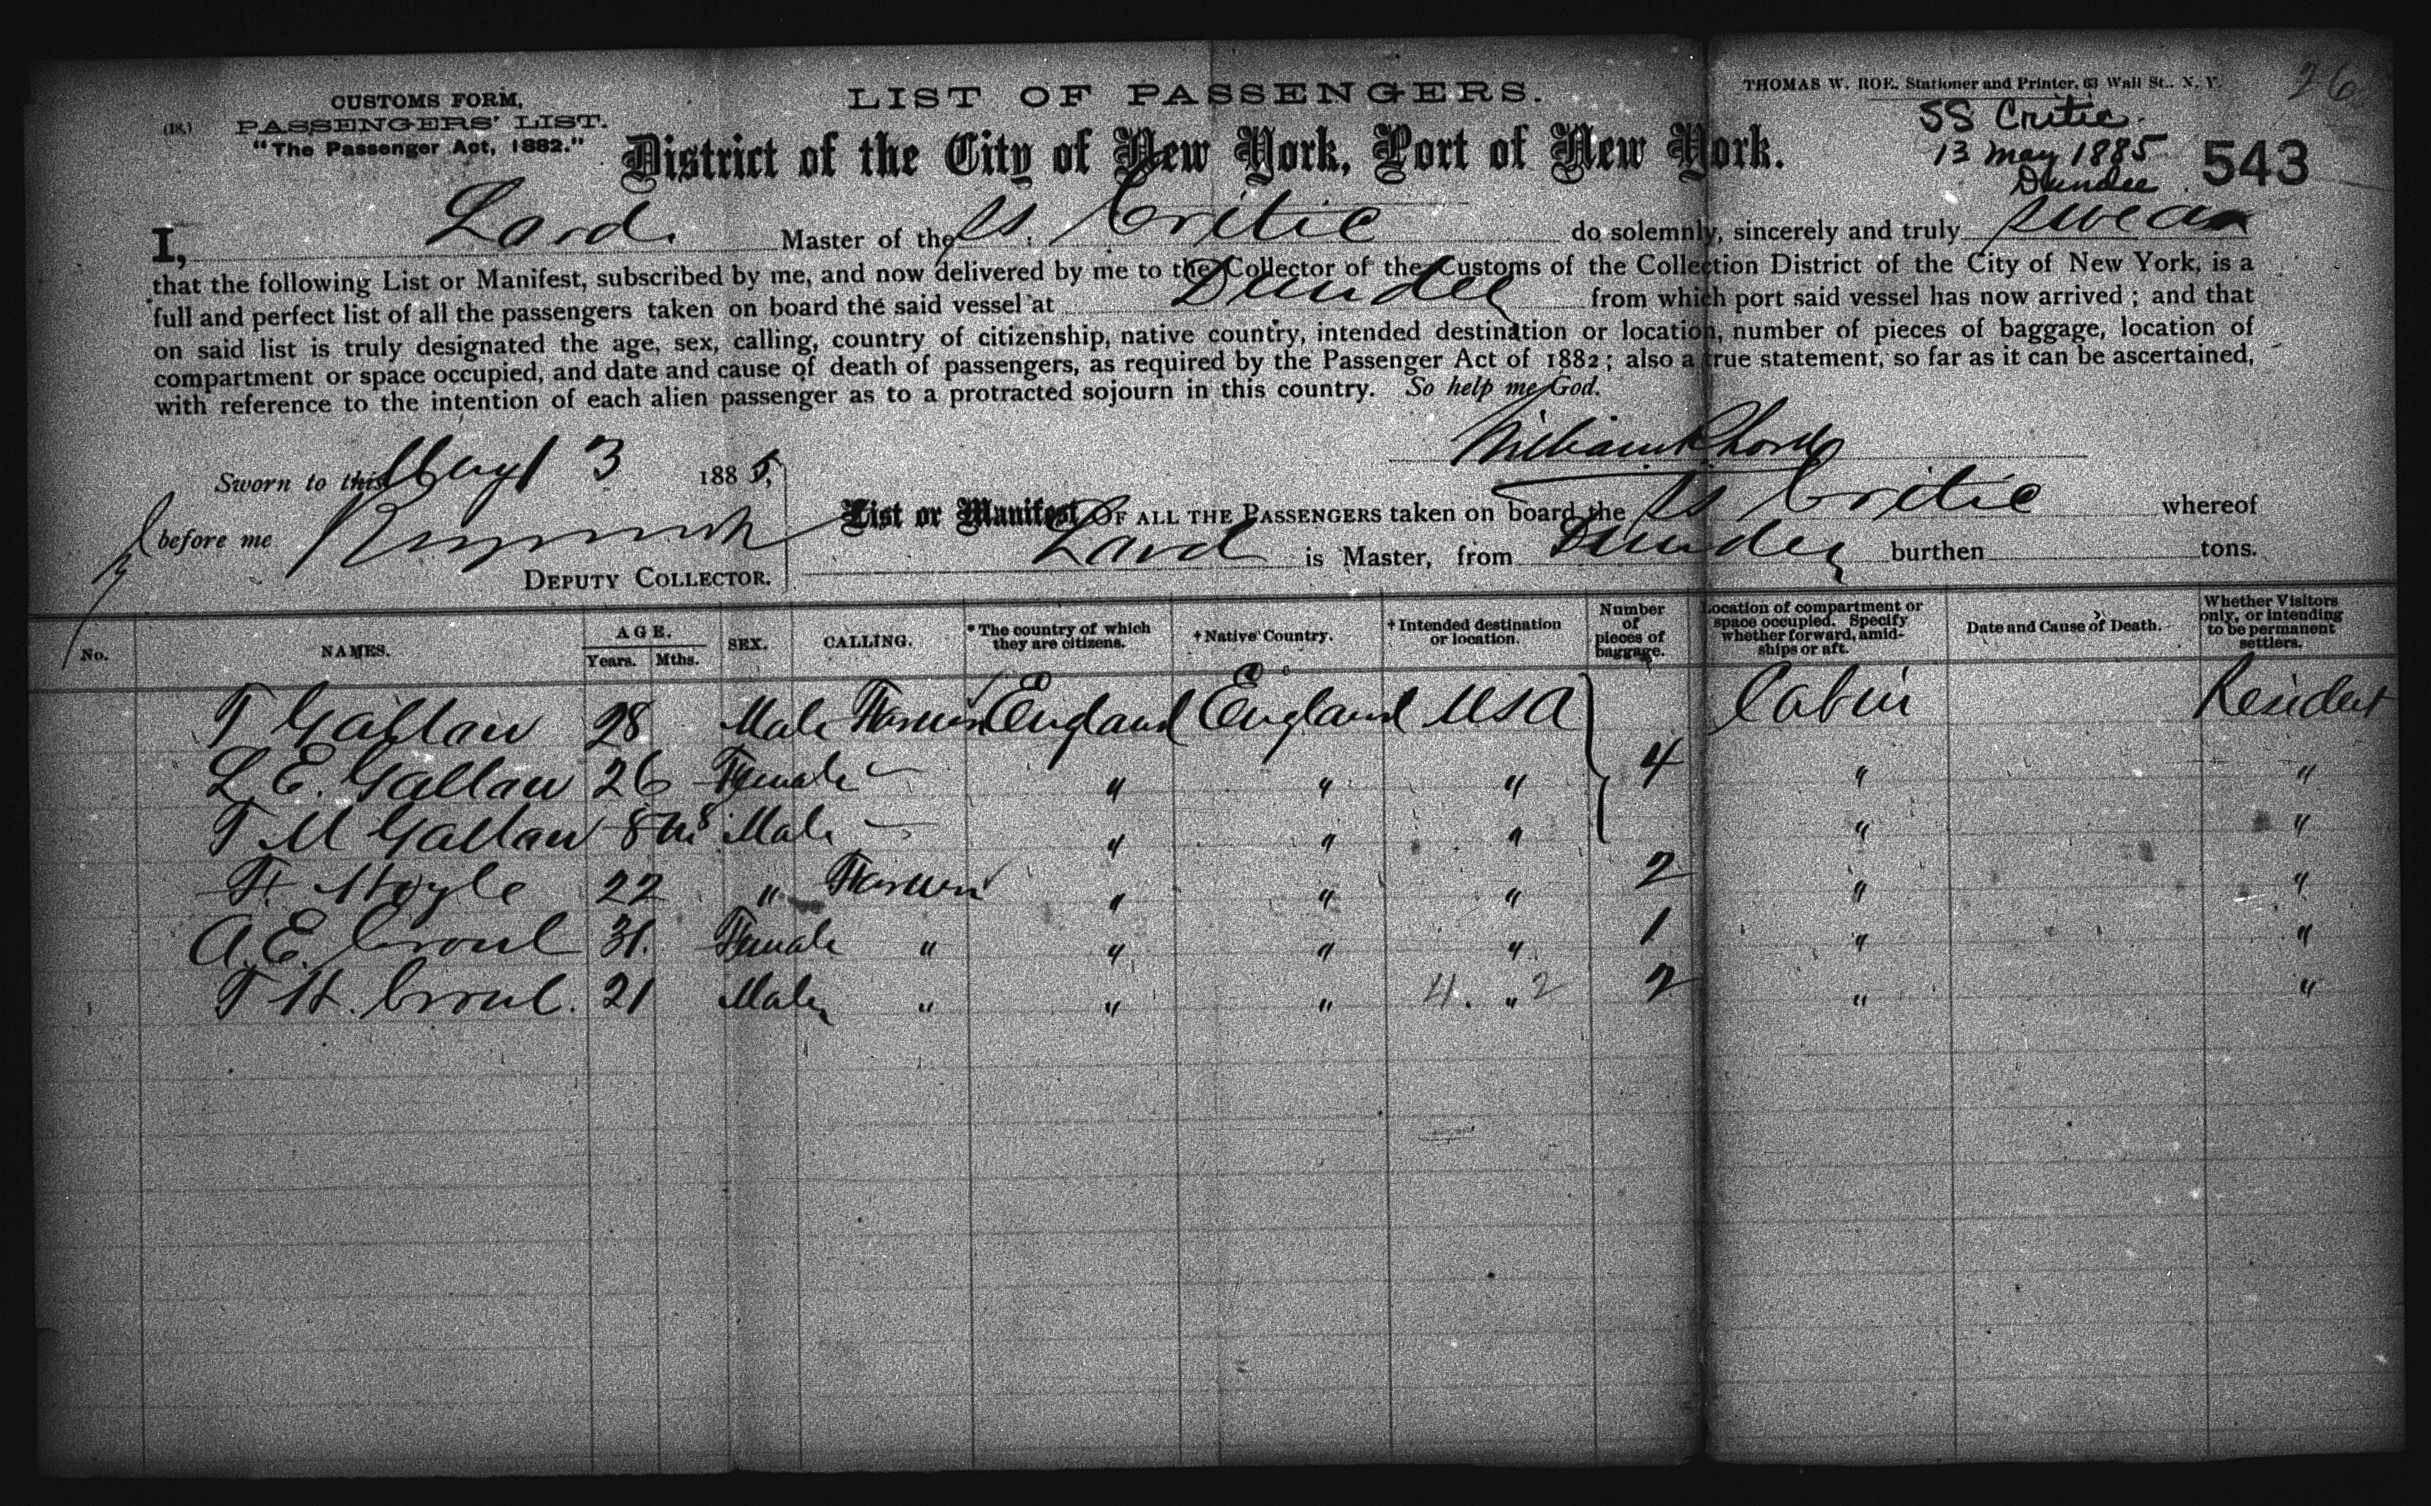 26
CUSTOMS FORM,
(18.) PASSENGERS' LIST.
"The Passenger Act, 1882."
LIST OF PASSENGERS.
THOMAS W. ROE, Stationer and Printer, 63 Wall St., N. Y.
SS Critic.
13 May 1885
Dundee
543
District of the City of New York, Port of New York.
I, Lord Master of the SS Critic do solemnly, sincerely and truly swear
that the following List or Manifest, subscribed by me, and now delivered by me to the Collector of the Customs of the Collection District of the City of New York, is a
full and perfect list of all the passengers taken on board the said vessel at Dundee from which port said vessel has now arrived; and that
on said list is truly designated the age, sex, calling, country of citizenship, native country, intended destination or location, number of pieces of baggage, location of
compartment or space occupied, and date and cause of death of passengers, as required by the Passenger Act of 1882; also a true statement, so far as it can be ascertained,
with reference to the intention of each alien passenger as to a protracted sojourn in this country. So help me God.
Sworn to this May 13 1885,
before me
DEPUTY COLLECTOR.
List or Manifest OF ALL THE PASSENGERS taken on board the SS Critic whereof
Lord is Master, from Dundee burthen tons.
No. NAMES. AGE. Years. Mths. SEX. CALLING. *The country of which they are citizens. †Native Country. †Intended destination or location. Number of pieces of baggage. Location of compartment or space occupied. Specify whether forward, amidships or aft. Date and Cause of Death. Whether Visitors only, or intending to be permanent settlers.
T Gallaw 28 Male Farmer England England USA Cabin Resident
L. E. Gallaw 26 Female — " " " 4 " "
T M Gallaw 8 ms Male — " " " " "
H. Hoyle 22 " Farmer " " " 2 " "
A. E. Croul 31. Female " " " " 1 " "
T H. Croul. 21 Male " " " 4. " 2 2 " "